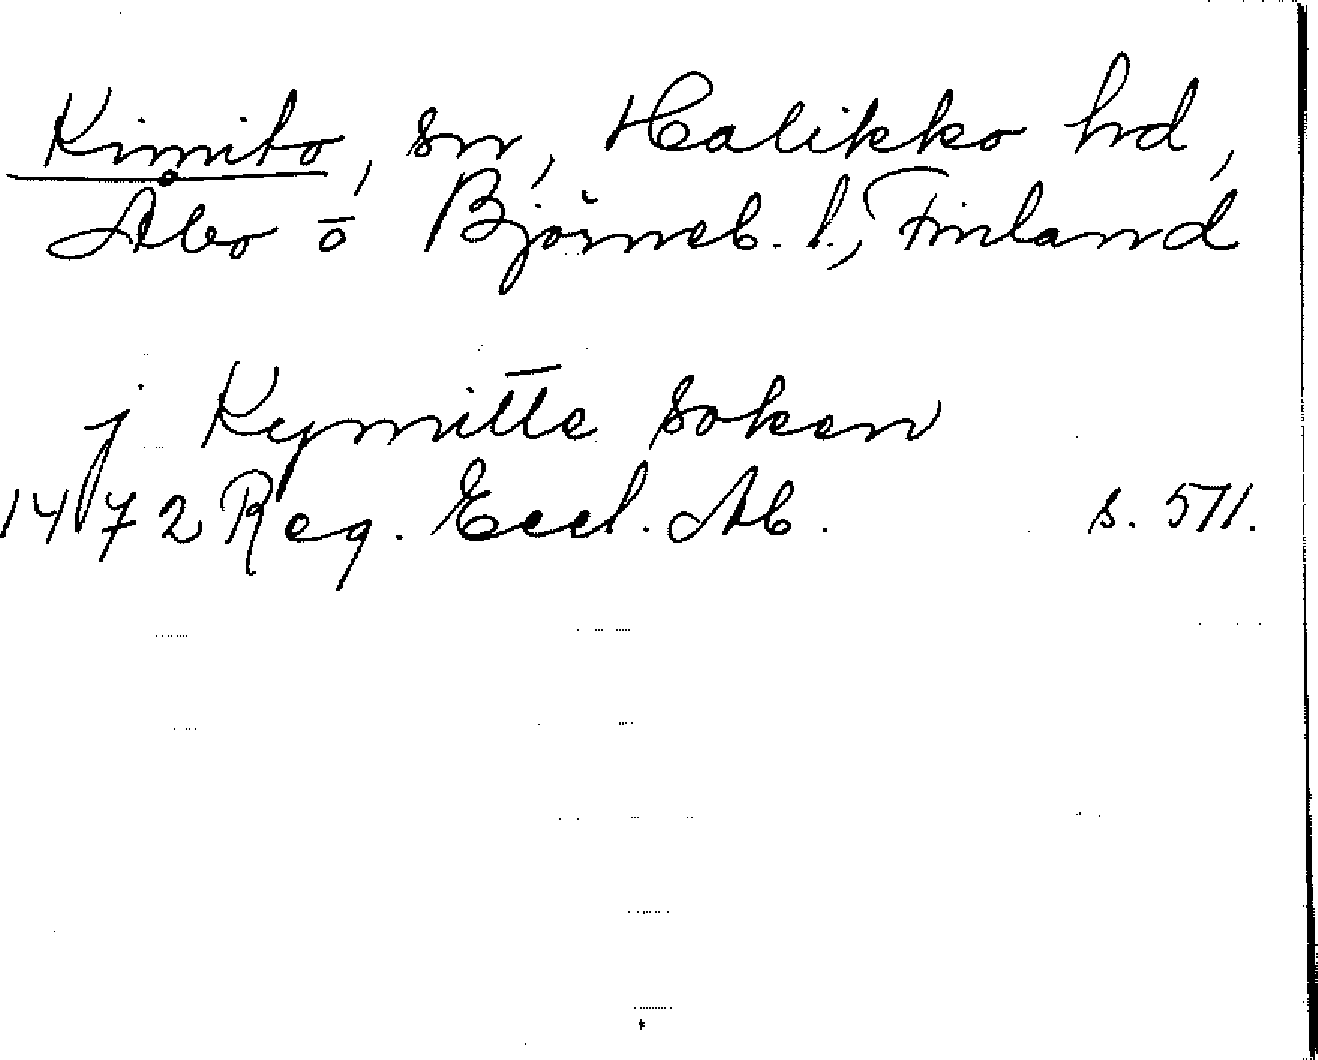 Kimito, sn, Halikko hd,
Åbo o Björneb. l., Finland
j Kymitte soken
1472 Reg. Eccl. Ab. s. 571.